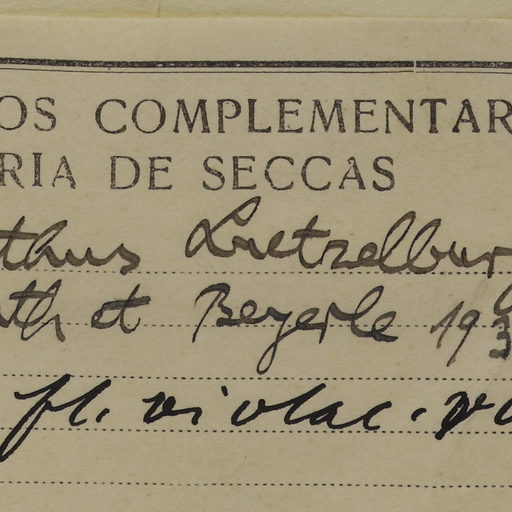 OS COMPLEMENTAR
RIA DE SECCAS
thus Luetzelburg
th et Beyerle 193
fl. violac.